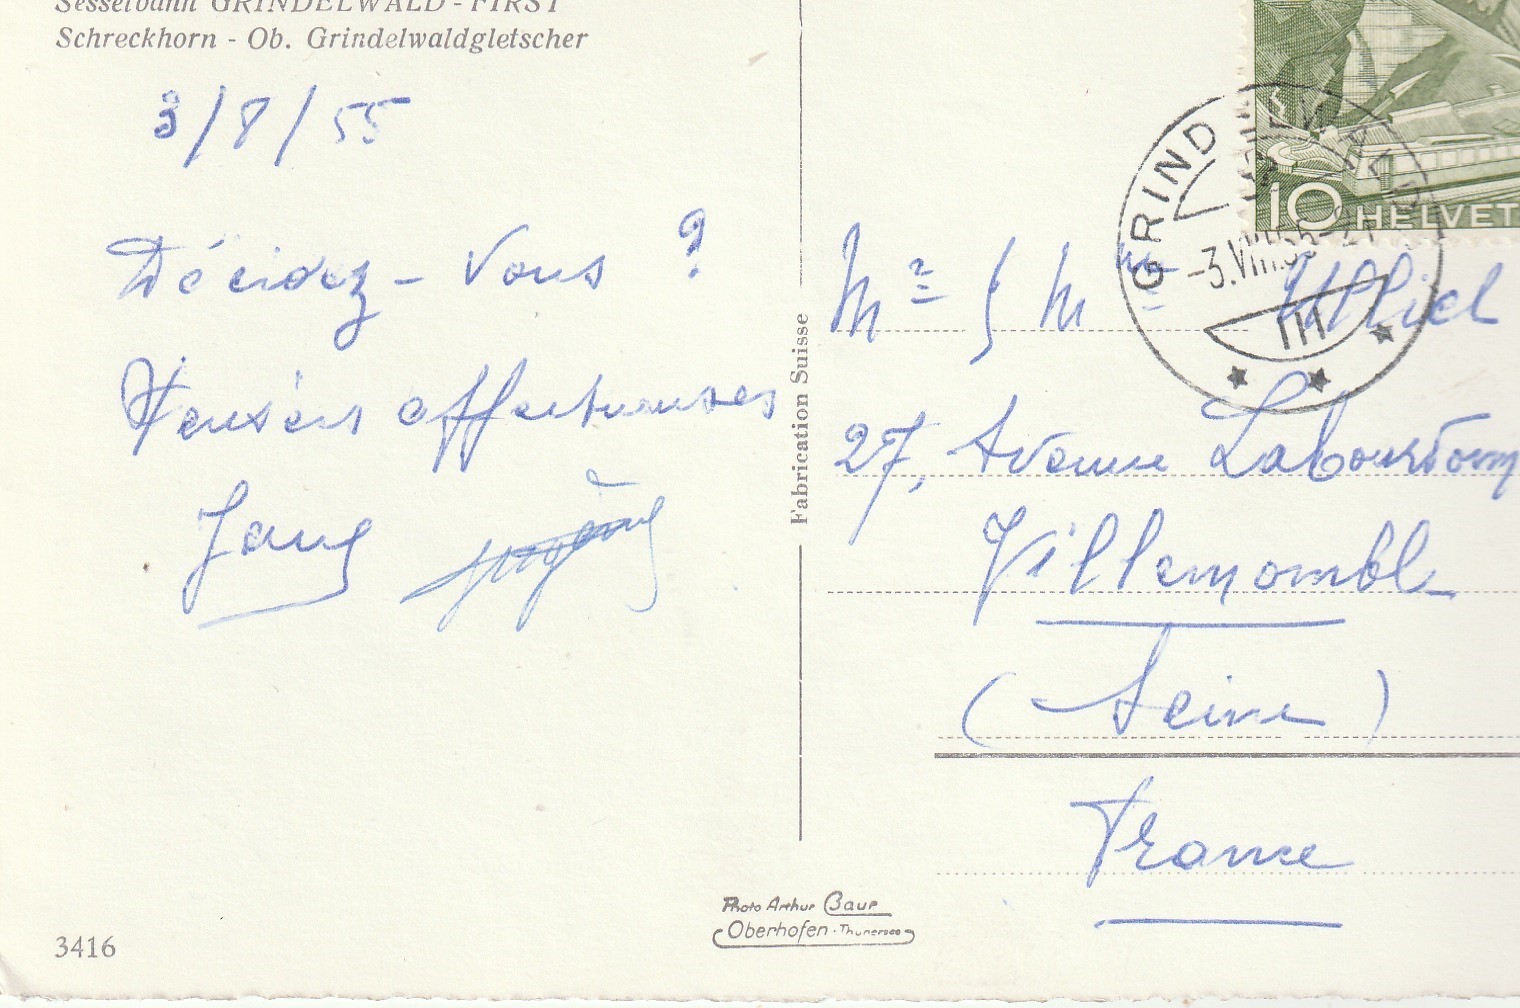 Sesselbahn GRINDELWALD - FIRST
Schreckhorn - Ob. Grindelwaldgletscher
3/8/55
Décidez-vous ?
Pensées affectueuses
Fabrication Suisse
10 HELVET
GRINDELWALD
-3.VIII.55-21
Mr & Mme
27, Avenue Labourdonn
Villemomble
(Seine)
France
Photo Arthur Baur
Oberhofen · Thunersee
3416